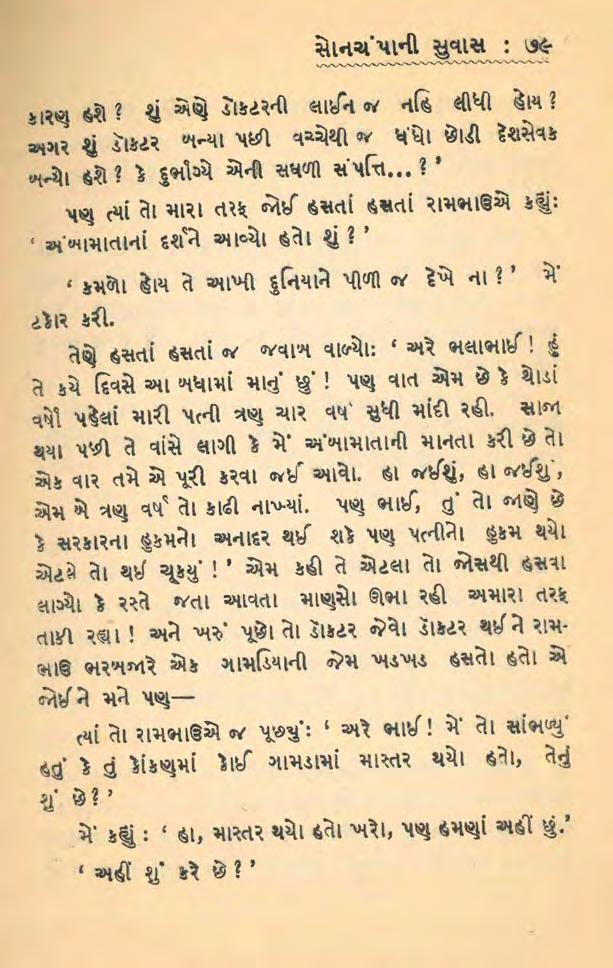 સોનચંપાની સુવાસ : ૭૯
કારણ હશે ? શું એણે ડૉકટરની લાઈન જ નહિ લીધી હોય ?
અગર શું ડૉકટર બન્યા પછી વચ્ચેથી જ ધંધો છોડી દેશસેવક
બન્યો હશે ? કે દુર્ભાગ્યે એની સઘળી સંપત્તિ...? ’
પણ ત્યાં તો મારા તરફ જોઈ હસતાં હસતાં રામભાઉએ કહ્યું:
‘ અંબામાતાનાં દર્શને આવ્યો હતો શું ? ’
‘ કમળો હોય તે આખી દુનિયાને પીળી જ દેખે ના ? ’ મેં
ટકોર કરી.
તેણે હસતાં હસતાં જ જવાબ વાળ્યો: ‘ અરે ભલાભાઈ ! હું
તે કયે દિવસે આ બધામાં માનું છું ! પણ વાત એમ છે કે થોડાં
વર્ષો પહેલાં મારી પત્ની ત્રણ ચાર વર્ષ સુધી માંદી રહી. સાજા
થયા પછી તે વાંસે લાગી કે મેં અંબામાતાની માનતા કરી છે તો
એક વાર તમે એ પૂરી કરવા જઈ આવો. હા જઈશું, હા જઈશું,
એમ બે ત્રણ વર્ષ તો કાઢી નાખ્યાં. પણ ભાઈ, તું તો જાણે છે
કે સરકારના હુકમનો અનાદર થઈ શકે પણ પત્નીનો હુકમ થયો
એટલે તો થઈ ચૂકયું ! ’ એમ કહી તે એટલા તો જોસથી હસવા
લાગ્યો કે રસ્તે જતા આવતા માણસો ઊભા રહી અમારા તરફ
તાકી રહ્યા ! અને ખરું પૂછો તો ડૉકટર જેવો ડૉકટર થઈને રામ-
ભાઉ ભરબજારે એક ગામડિયાની જેમ ખડખડ હસતો હતો એ
જોઈને મને પણ—
ત્યાં તો રામભાઉએ જ પૂછ્યું: ‘ અરે ભાઈ ! મેં તો સાંભળ્યું
હતું કે તું કોંકણમાં કોઈ ગામડામાં માસ્તર થયો હતો, તેનું
શું છે ? ’
મેં કહ્યું : ‘ હા, માસ્તર થયો હતો ખરો, પણ હમણાં અહીં છું.’
‘ અહીં શું કરે છે ? ’